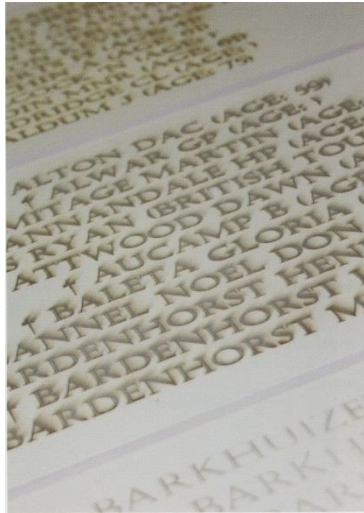 ALDUM J (AGE: 79)
ALTON DAC (AGE: 59)
† ALWAR GF (AGE: )
MITAGE MARTIN (AGE:
ANNANDALE HP (AGE:
S RYAN (BRITISH TOU
ATTWOOD DAWN (A
† AUCAMP B (AG
† BALETA GLORIA
ANNEL NOEL DON
ARDENHORST HEN
† BARDENHORST
BARDENHORST M
BARKHUIZE
BARKL
BAR